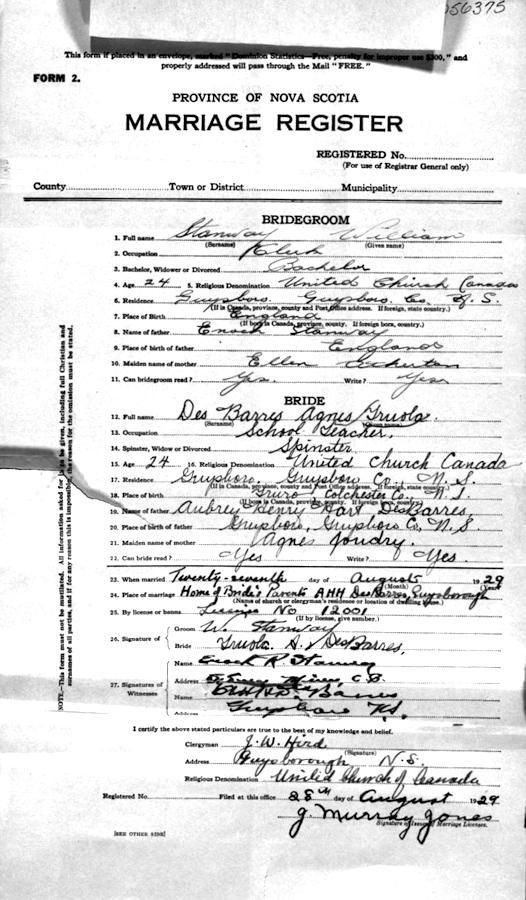 056375
This form if placed in an envelope, marked "Dominion Statistics—Free, penalty for improper use $300," and
properly addressed will pass through the Mail "FREE."
FORM 2.
PROVINCE OF NOVA SCOTIA
MARRIAGE REGISTER
REGISTERED No.
(For use of Registrar General only)
County Town or District Municipality
BRIDEGROOM
1. Full name Stanway William
(Surname) (Given name)
2. Occupation Clerk
3. Bachelor, Widower or Divorced Bachelor
4. Age 24 5. Religious Denomination United Church Canada
6. Residence Guysboro. Guysboro. Co. N. S.
(If in Canada, province, county and Post Office address. If foreign, state country.)
7. Place of Birth England
(If born in Canada, province, county. If foreign born, country.)
8. Name of father Enoch Stanway
9. Place of birth of father England
10. Maiden name of mother Ellen
11. Can bridegroom read? Yes. Write? Yes
BRIDE
12. Full name Des Barres Agnes Truola.
(Surname) (Given name)
13. Occupation School Teacher.
14. Spinster, Widow or Divorced Spinster
15. Age 24 16. Religious Denomination United Church Canada
17. Residence Guysboro. Guysboro Co. N. S.
(If in Canada, province, county and Post Office address. If foreign, state country.)
18. Place of birth Truro Colchester Co. N. S.
(If born in Canada, province, county. If foreign born, country.)
19. Name of father Aubrey Henry Hart DesBarres,
20. Place of birth of father Guysboro, Guysboro Co, N. S.
21. Maiden name of mother Agnes Jondry.
22. Can bride read? Yes Write? Yes.
23. When married Twenty-seventh day of August 1929
(Month)
24. Place of marriage Home of Bride's Parents AHH DesBarres, Guysborough
(Name of church or clergyman's residence or location of dwelling house.)
25. By license or banns License No 12001
(If by license, give number.)
26. Signature of Groom W. Stanway
Bride Truola. A. DesBarres,
27. Signatures of Witnesses
Name Enoch R. Stanway
Address Mines, C. B.
Name Barres
Address Guysboro N.S.
I certify the above stated particulars are true to the best of my knowledge and belief.
Clergyman J. W. Hird
(Signature)
Address Guysborough N. S.
Religious Denomination United Church of Canada
Registered No. Filed at this office 28th day of August 1929
J. Murray Jones
Signature of Issuer of Marriage Licenses.
[SEE OTHER SIDE]
NOTE.—This form must not be mutilated. All information asked for is to be given, including full Christian and
surname of all parties, and if for any reason this is impossible, the reasons for the omission must be stated.